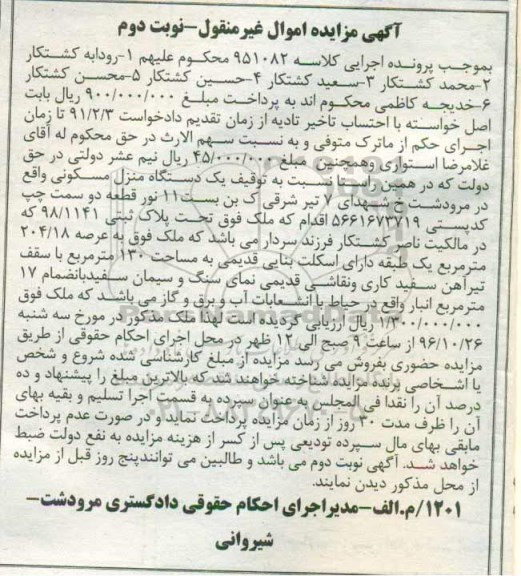 آگهی مزایده اموال غیرمنقول-نوبت دوم
بموجب پرونده اجرایی کلاسه ۹۵۱۰۸۲ محکوم علیهم ۱-رودابه کشتکار
۲-محمد کشتکار ۳-سعید کشتکار ۴-حسین کشتکار ۵-محسن کشتکار
۶-خدیجه کاظمی محکوم اند به پرداخت مبلغ ۹۰۰/۰۰۰/۰۰۰ ریال بابت
اصل خواسته با احتساب تاخیر تادیه از زمان تقدیم دادخواست ۹۱/۲/۳ تا زمان
اجرای حکم از ماترک متوفی و به نسبت سهم الارث در حق محکوم له آقای
غلامرضا استواری وهمچنین مبلغ ۴۵/۰۰۰/۰۰۰ ریال نیم عشر دولتی در حق
دولت که در همین راستا نسبت به توقیف یک دستگاه منزل مسکونی واقع
در مرودشت خ شهدای ۷ تیر شرقی ک بن بست ۱۱ نور قطعه دو سمت چپ
کدپستی ۵۶۶۱۶۷۳۷۱۹ اقدام که ملک فوق تحت پلاک ثبتی ۹۸/۱۱۴۱ که
در مالکیت ناصر کشتکار فرزند سردار می باشد که ملک فوق به عرصه ۲۰۴/۱۸
مترمربع یک طبقه دارای اسکلت بنایی قدیمی به مساحت ۱۳۰ مترمربع با سقف
تیرآهن سفید کاری ونقاشی قدیمی نمای سنگ و سیمان سفیدبانضمام ۱۷
مترمربع انبار واقع در حیاط با انشعابات آب و برق و گاز می باشد که ملک فوق
۱/۳۰۰/۰۰۰/۰۰۰ ریال ارزیابی گردیده است لهذا ملک مذکور در مورخ سه شنبه
۹۶/۱۰/۲۶ از ساعت ۹ صبح الی ۱۲ ظهر در محل اجرای احکام حقوقی از طریق
مزایده حضوری بفروش می رسد مزایده از مبلغ کارشناسی شده شروع و شخص
یا اشخاصی برنده مزایده شناخته خواهند شد که بالاترین مبلغ را پیشنهاد و ده
درصد آن را نقدا فی المجلس به عنوان سپرده به قسمت اجرا تسلیم و بقیه بهای
آن را ظرف مدت ۳۰ روز از زمان مزایده پرداخت نماید و در صورت عدم پرداخت
مابقی بهای مال سپرده تودیعی پس از کسر از هزینه مزایده به نفع دولت ضبط
خواهد شد. آگهی نوبت دوم می باشد و طالبین می توانندپنج روز قبل از مزایده
از محل مذکور دیدن نمایند.
۱۲۰۱/م.الف-مدیراجرای احکام حقوقی دادگستری مرودشت-
شیروانی